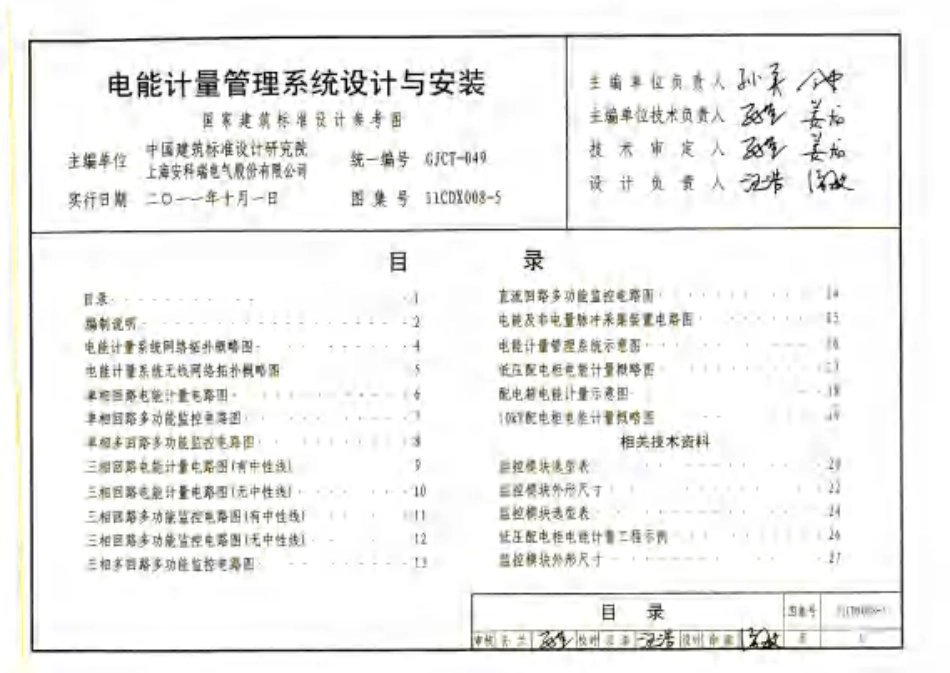 电能计量管理系统设计与安装
国家建筑标准设计参考图
主编单位 中国建筑标准设计研究院
上海安科瑞电气股份有限公司
统一编号 GJCT-049
实行日期 二〇一一年十月一日
图集号 11CDX008-5
主编单位负责人
主编单位技术负责人
技术审定人
设计负责人 汪浩
目 录
目录 1
编制说明 2
电能计量系统网络拓扑概略图 4
电能计量系统无线网络拓扑概略图 5
单相回路电能计量电路图 6
单相回路多功能监控电路图 7
单相多回路多功能监控电路图 8
三相回路电能计量电路图(有中性线) 9
三相回路电能计量电路图(无中性线) 10
三相回路多功能监控电路图(有中性线) 11
三相回路多功能监控电路图(无中性线) 12
三相多回路多功能监控电路图 13
直流回路多功能监控电路图 14
电能及非电量脉冲采集装置电路图 15
电能计量管理系统示意图 16
低压配电柜电能计量概略图
配电箱电能计量示意图 18
10kV配电柜电能计量概略图 19
相关技术资料
监控模块选型表 20
监控模块外形尺寸 22
监控模块选型表 24
低压配电柜电能计量工程示例 26
监控模块外形尺寸 27
目 录
图集号 11CDX008-5
审核 校对 汪浩 设计
页 1